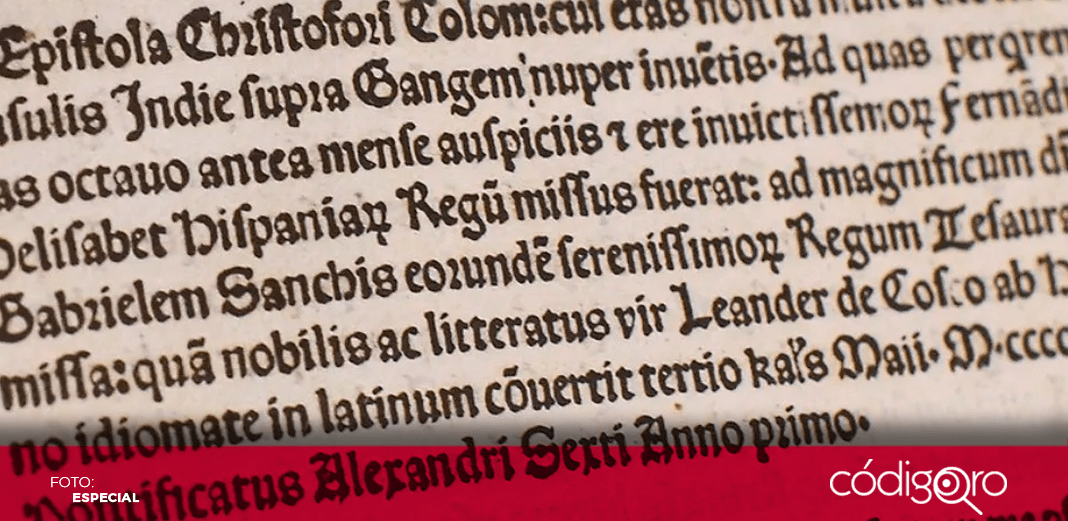 Epiſtola Chriſtofori Colom: cui etas noſtra
Inſulis Indie ſupra Gangem nuper inuētis. Ad quas
octauo antea menſe auſpiciis ⁊ ere inuictiſſemoꝝ Fernādi
Deliſabet Hiſpaniaꝝ Regū miſſus fuerat: ad magnificum dn̄
Gabrielem Sanchis eorundē ſereniſſimoꝝ Regum Teſaur
miſſa: quā nobilis ac litteratus vir Leander de Coſco ab
no idiomate in latinum cōuertit tertio kaƚs Maii. M.cccc
Pontificatus Alexandri Sexti Anno primo.
FOTO:
ESPECIAL
códigoQro